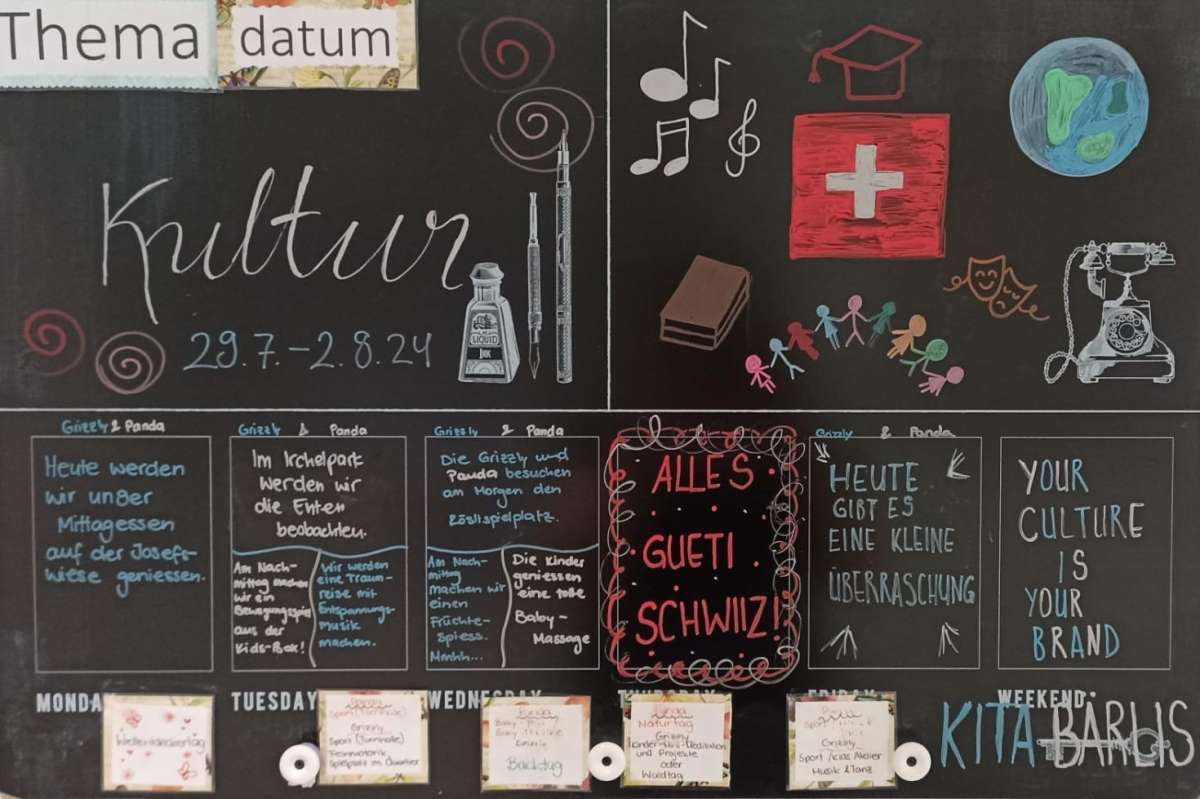 Thema
datum
Kultur
29.7.-2.8.24
LIQUID
INK
Grizzly & Panda
Heute werden
wir unser
Mittagessen
auf der Josefs-
wiese geniessen.
Grizzly & Panda
Im Irchelpark
werden wir
die Enten
beobachten.
Am Nach-
mittag machen
wir ein
Bewegungsspiel
aus der
Kids-Box!
Wir werden
eine Traum-
reise mit
Entspannungs-
musik
machen.
Grizzly & Panda
Die Grizzly und
Panda besuchen
am Morgen den
Röslispielplatz.
Am Nach-
mittag
machen wir
einen
Früchte-
Spiess.
Mmhh...
Die Kinder
geniessen
eine tolle
Baby-
Massage
ALLES
GUETI
SCHWIIZ!
Grizzly & Panda
HEUTE
GIBT ES
EINE KLEINE
ÜBERRASCHUNG
YOUR
CULTURE
IS
YOUR
BRAND
MONDAY
TUESDAY
WEDNESDAY
THURSDAY
FRIDAY
WEEKEND
Sport (Turnhalle)
Grizzly
Sport (Turnhalle)
Spielplatz im Quartier
Panda
Backtag
Panda
Naturtag
Grizzly
und Projekte
oder
Waldtag
Grizzly
Sport / Kids Atelier
Musik & Tanz
KITA BÄRLIS